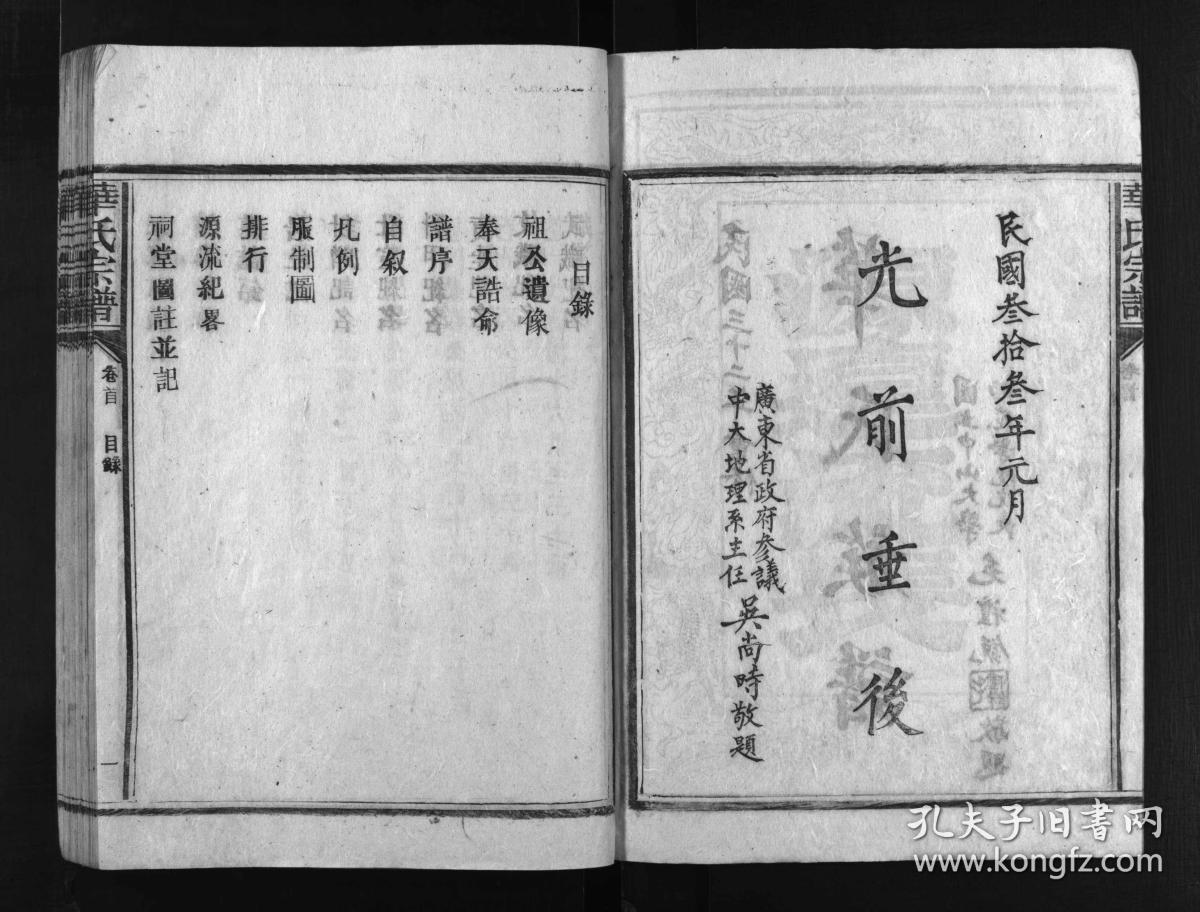 華氏宗譜
民國叁拾叁年元月
光前垂後
廣東省政府參議
中大地理系主任
吳尚時敬題
目錄
祖公遺像
奉天誥命
譜序
自叙
凡例
服制圖
排行
源流紀畧
祠堂圖註並記
華氏宗譜
卷首
目錄
一
孔夫子旧书网
www.kongfz.com